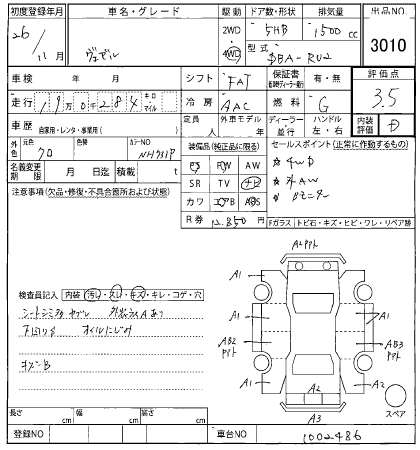 初度登録年月 車名・グレード 駆動 ドア数・形状 排気量 出品NO
26/11月 ヴェゼル 2WD 4WD 5HB 1500cc 3010
型式 DBA-RU2
車検 年 月 シフト FAT 保証書 有・無 評価点
走行 19万0千284 キロ マイル 冷房 AAC 燃料 G 3.5
車歴 自家用・レンタ・事業用( ) 定員 人 外車モデル 年 ディーラー 並行 ハンドル 左・右 内装評価 D
外色 元色 クロ 色替 カラーNO NH731P 装備品(純正品に限る) セールスポイント(正常に作動するもの)
PS PW AW 4WD
名義変更期限 月 日迄 積載 t SR TV ナビ 社外AW
注意事項(欠品・修復・不具合箇所および状態) カワ エアB ABS Bモニター
R券 12,850円 Fガラス トビ石・キズ・ヒビ・ワレ・リペア跡
検査員記入 内装 汚れ・スレ・キズ・キレ・コゲ・穴
シートシミ
オイルにじみ
キズ・B
A2
A1 A1
A1 A1
AB2 AB3
A1 A2
A2
A3
スペア
長さ cm 幅 cm 高さ cm
登録NO 車台NO 1002486